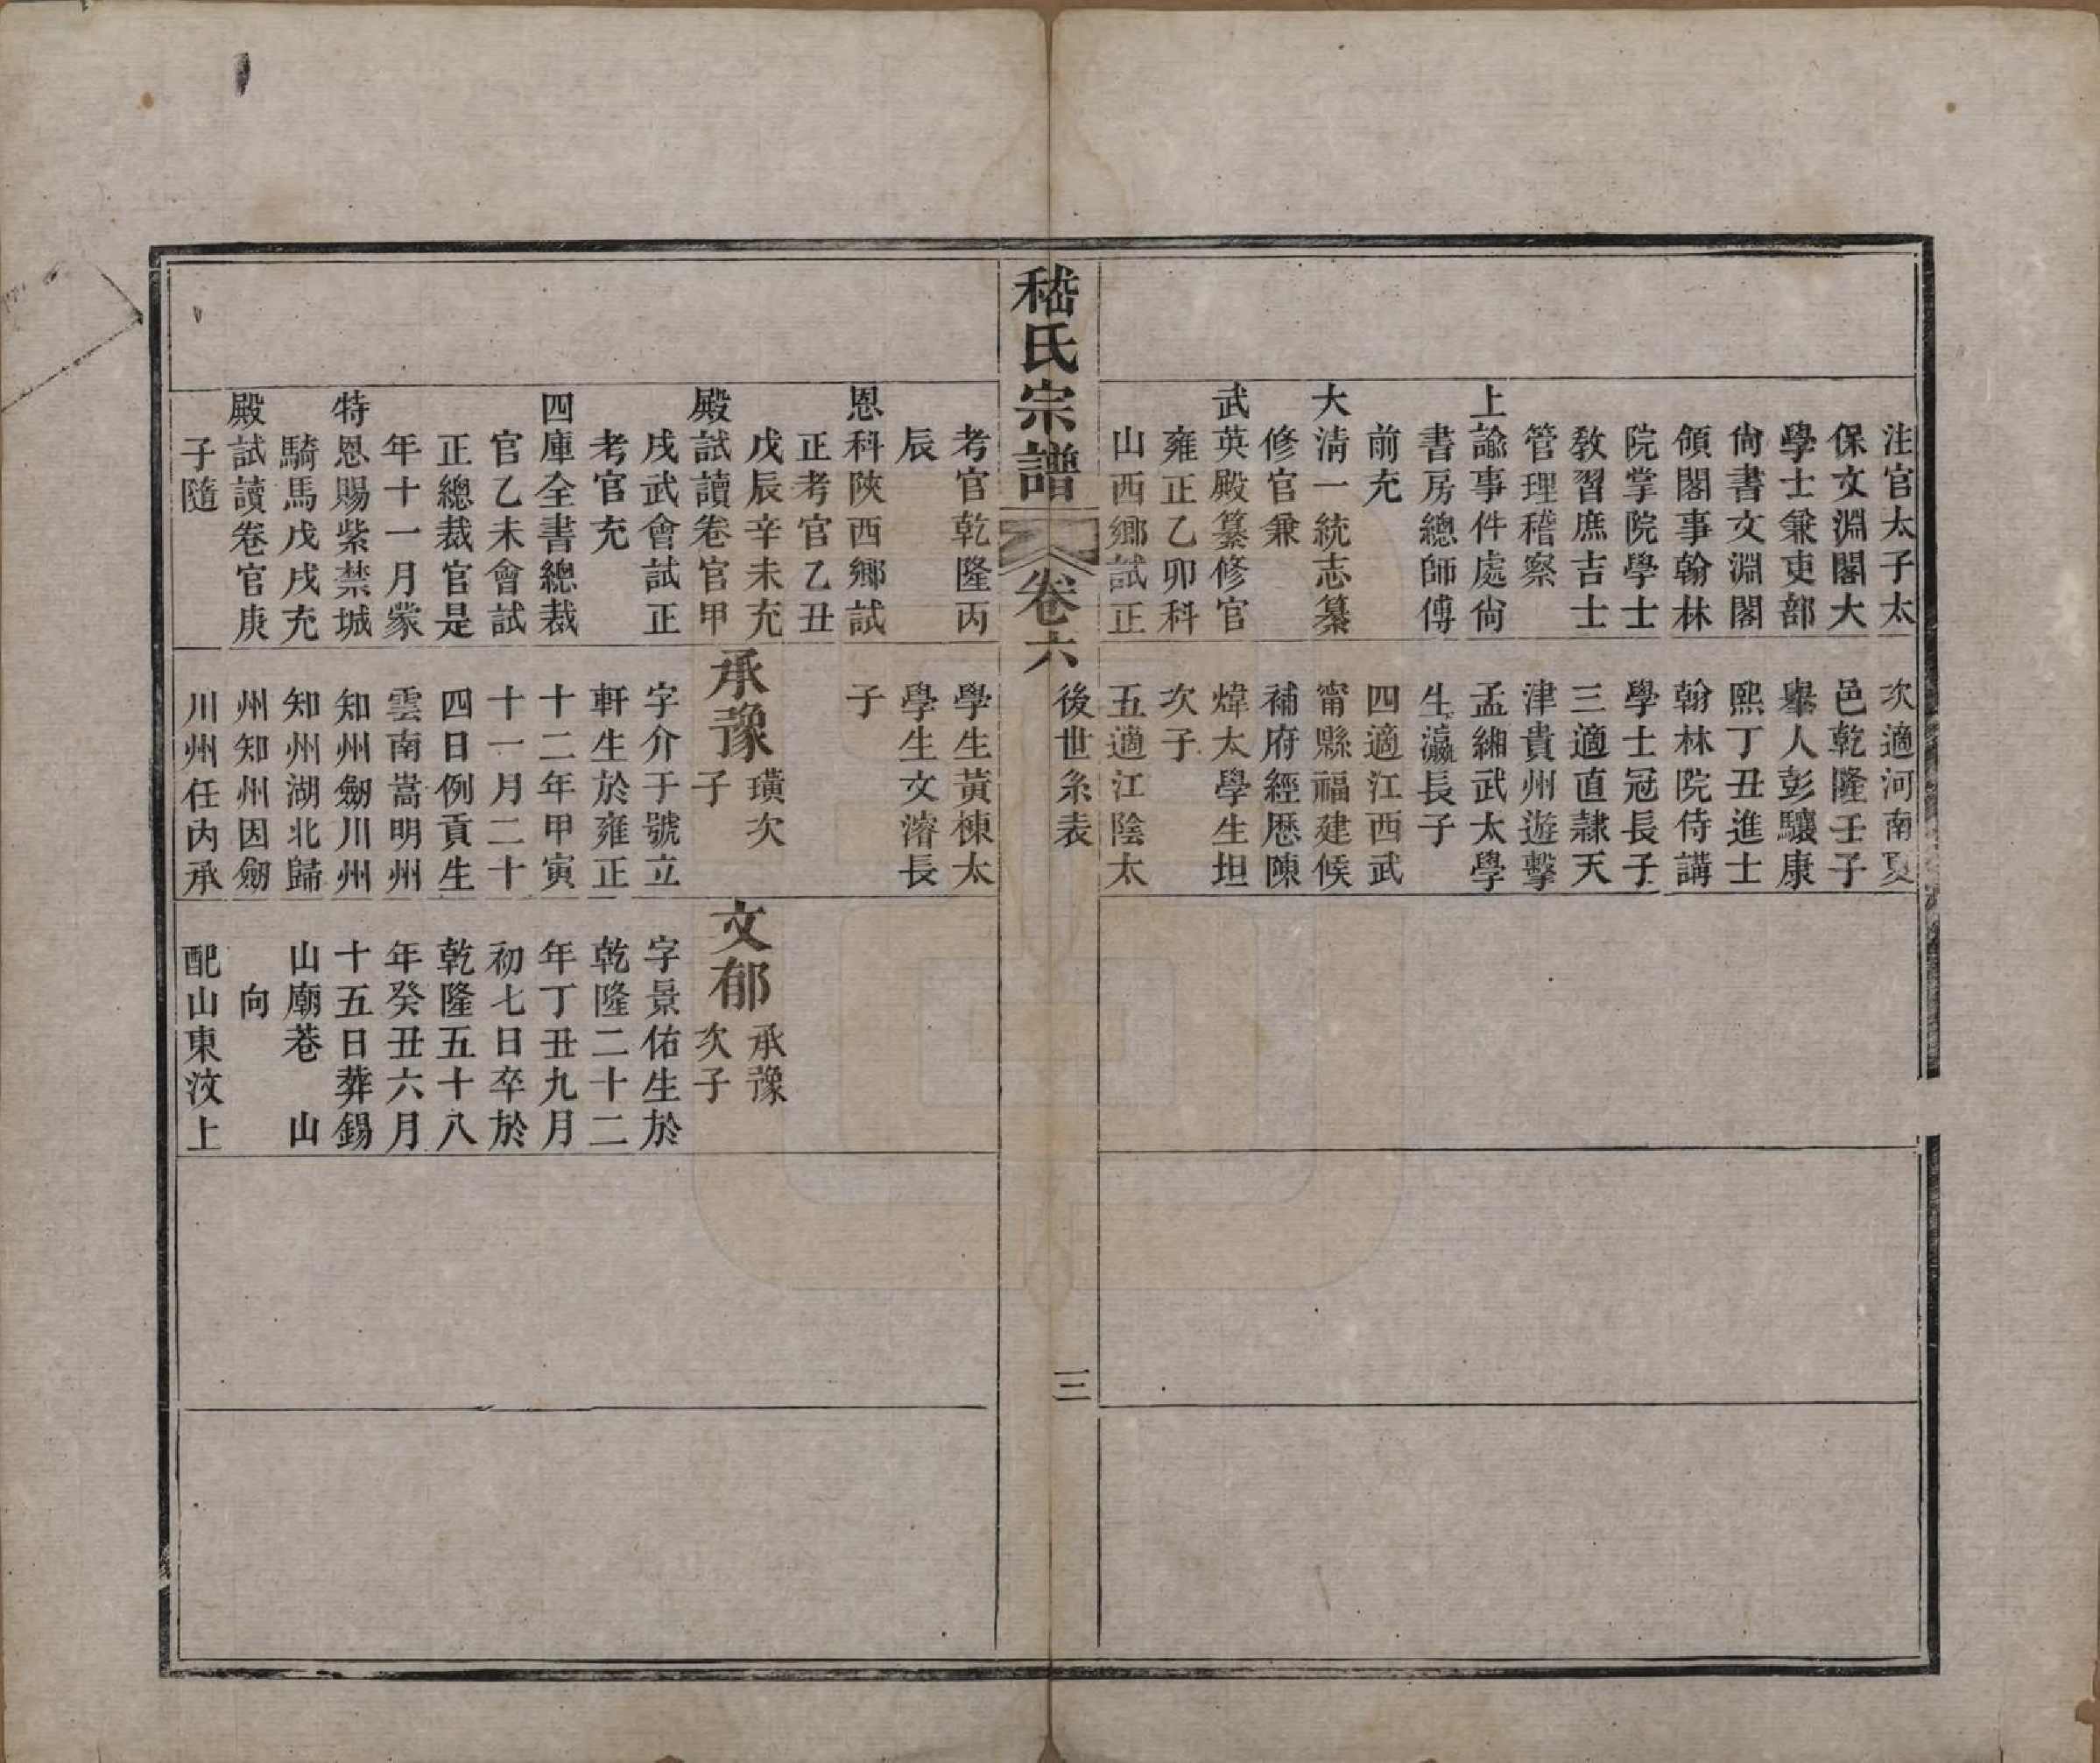 注官太子太
保文淵閣大
學士兼吏部
尙書文淵閣
領閣事翰林
院掌院學士
敎習庶吉士
管理稽察
上諭事件處尙
書房總師傅
前充
大淸一統志纂
修官兼
武英殿纂修官
雍正乙卯科
山西鄕試正
次適河南夏
邑乾隆壬子
舉人彭驤康
熙丁丑進士
翰林院侍講
學士冠長子
三適直隸天
津貴州遊擊
孟緗武太學
生瀛長子
四適江西武
甯縣福建候
補府經歷陳
煒太學生坦
次子
五適江陰太
嵇氏宗譜
卷六
後世系表
三
考官乾隆丙
辰
恩科陝西鄕試
正考官乙丑
戊辰辛未充
殿試讀卷官甲
戌武會試正
考官充
四庫全書總裁
官乙未會試
正總裁官是
年十一月蒙
特恩賜紫禁城
騎馬戊戌充
殿試讀卷官庚
子隨
學生黃棟太
學生文濬長
子
承豫
璜次
子
字介于號立
軒生於雍正
十二年甲寅
十一月二十
四日例貢生
雲南嵩明州
知州劒川州
知州湖北歸
州知州因劒
川州任內承
文郁
承豫
次子
字景佑生於
乾隆二十二
年丁丑九月
初七日卒於
乾隆五十八
年癸丑六月
十五日葬錫
山廟巷 山
向
配山東汶上